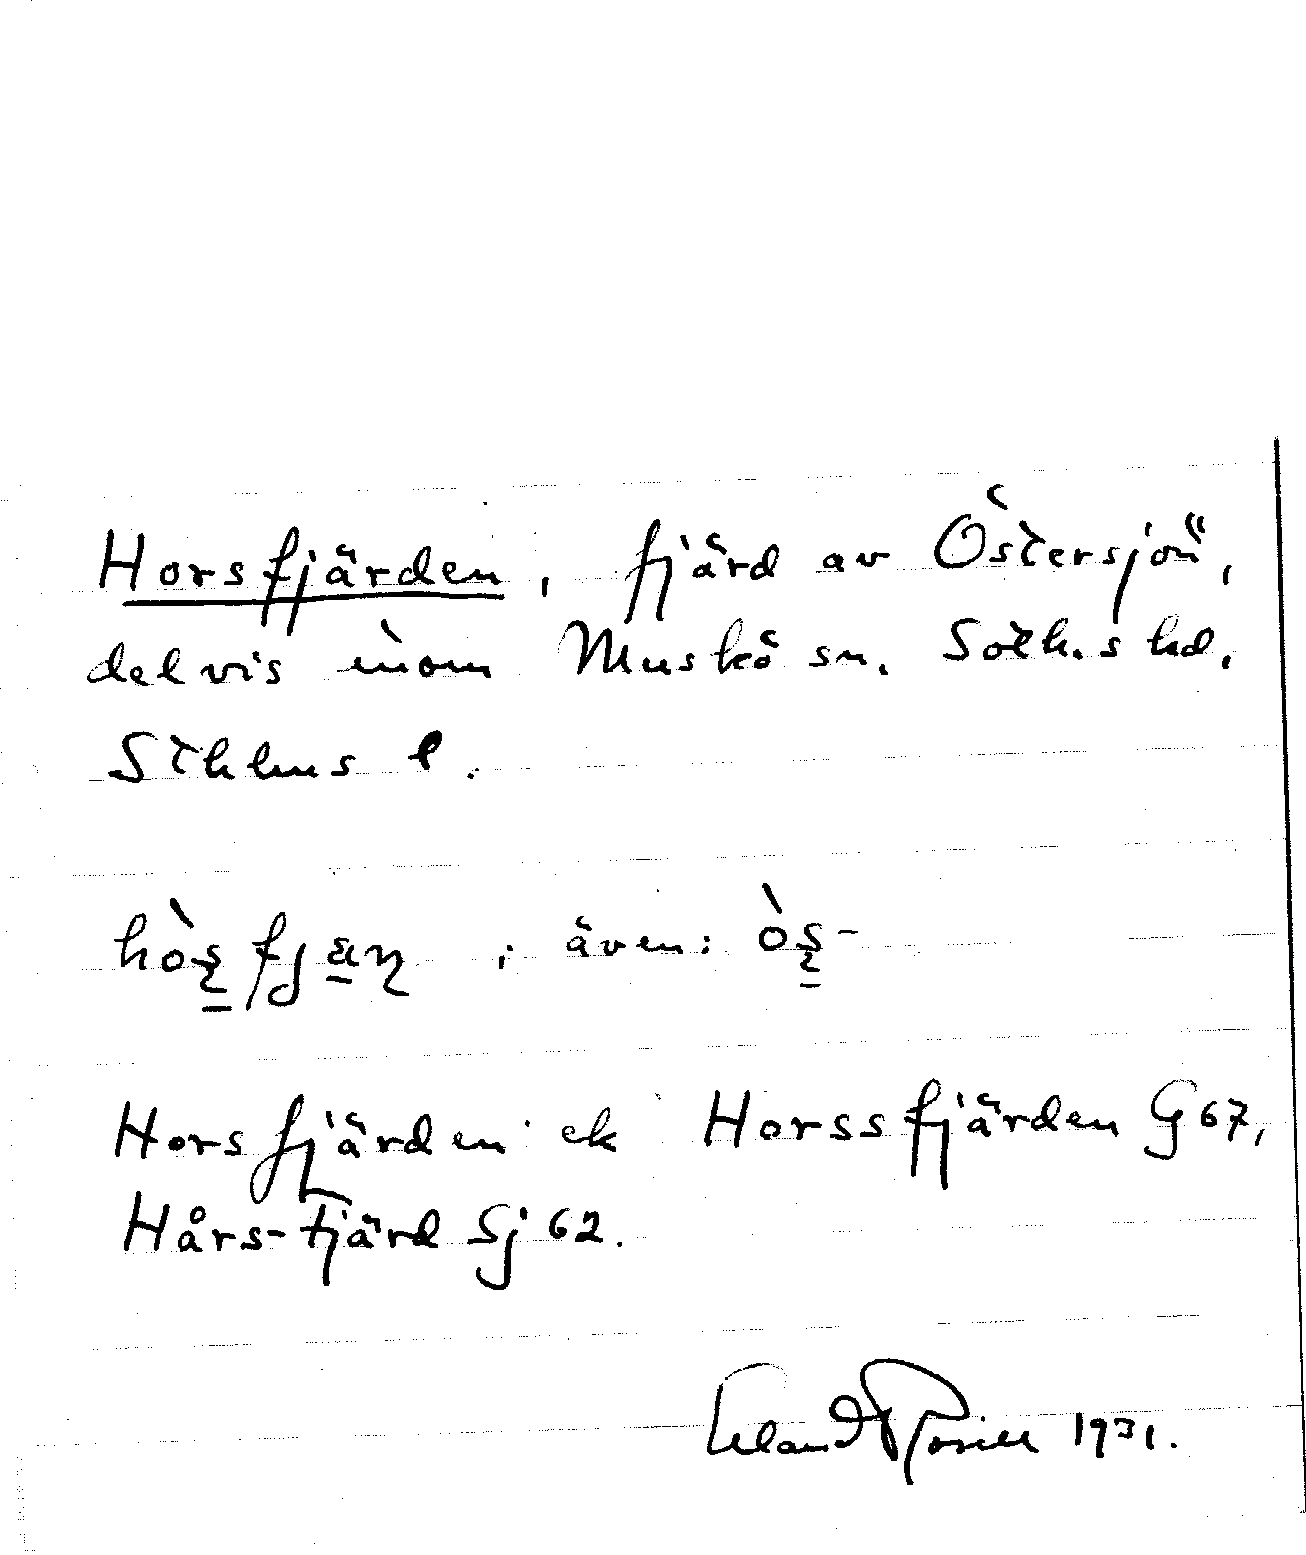 Horsfjärden, fjärd av Östersjön,
delvis inom Muskö sn. Soth.s hd,
Sthlms l.
hòş̱fja̱ɳ ; även: òş̱-
Horsfjärden ek Horssfjärden G 67,
Hårs-fjärd Sj 62.
Erland Rosell 1931.